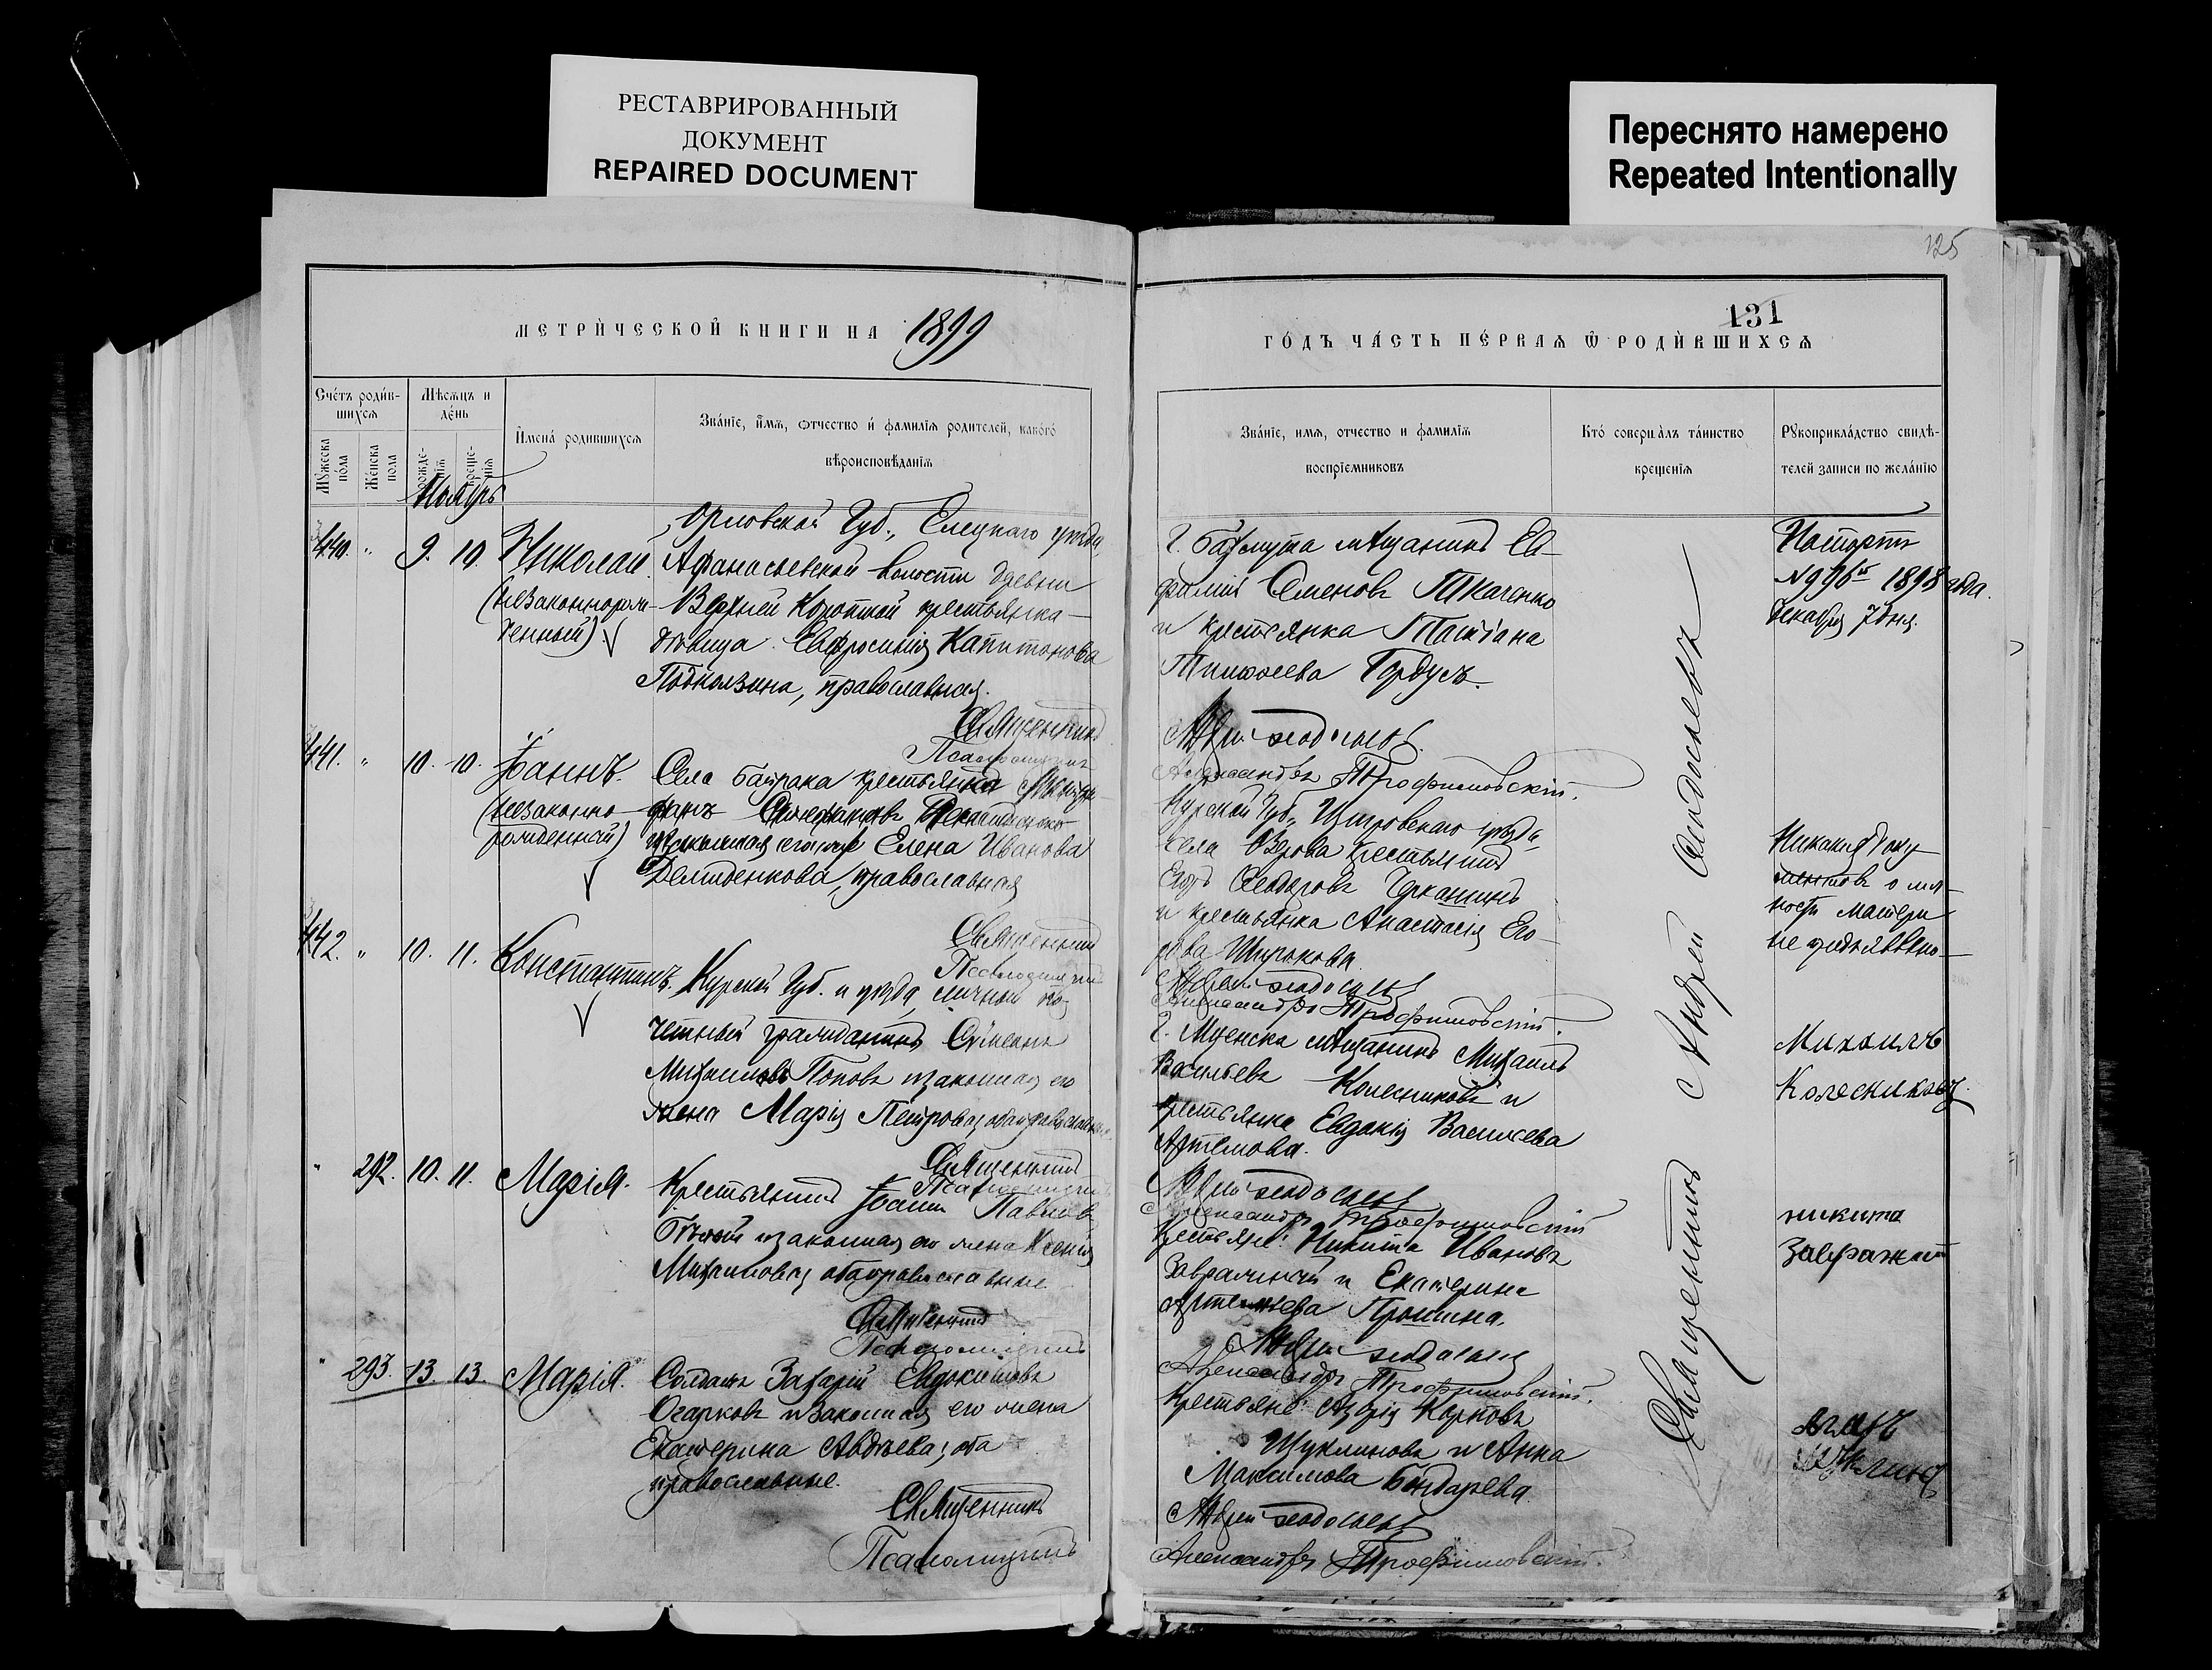 РЕСТАВРИРОВАННЫЙ
ДОКУМЕНТ
REPAIRED DOCUMENT
Переснято намерено
Repeated Intentionally
125
МЕТРИ́ЧЕСКОЙ КНИГИ НА 1899
131
ГО́ДЪ ЧА́СТЬ ПЕ́РВАѦ Ѿ РОДИ́ВШИХСѦ
Сче́тъ роди́в-
шихсѧ
Мѣсѧцъ и
де́нь
Мꙋ́жеска
по́ла
Же́нска
пола
рожде-
нїѧ
креще-
нїѧ
И҆мена́ родившихсѧ
Зва́нїе, и҆́мѧ, ѻтчество и҆ фамилїѧ родителей, како́гѡ
вѣроисповѣданїѧ
Зва́нїе, имѧ, отчество и фамилїѧ
воспрїемниковъ
Кто́ соверша́лъ та́инство
крещенїѧ
Рꙋкоприкла́дство свидѣ-
телей записи по жела́нїю
Ноябрь
440. " 9. 10. Николай.
(незаконнорож-
денный)
Орловской Губ., Елецкаго уѣзда,
Афанасьевской волости
Верхней крестьянка
дѣвица Евфросинія Капитонова
Подколзина, православная.
Священникъ
Псаломщикъ
Г. Бахмута мѣщанинъ Ев-
фимій Семеновъ Ткаченко
и крестьянка Татіана
Тимоѳеева Гордусъ.
Андрей Ѳеодосьевъ
Александръ Трофимовскій.
Паспортъ
№996 1898 года.
Декабря 7 дня.
441. " 10. 10. Іоаннъ.
(незаконно-
рожденный)
Села Байрака крестьянка
законная его жена Елена Иванова
Демиденкова, православная
Священникъ
Псаломщикъ
Курской Губ., Щигровскаго уѣзда,
села крестьянинъ
Егоръ Ѳеодоровъ
и крестьянка Анастасія Его-
рова Широкова
Андрей Ѳеодосьевъ
Александръ Трофимовскій.
Никакихъ доку-
ментовъ о лич-
ности матери
не предъявлено
442. " 10. 11. Константинъ.
Курской Губ. и уѣзда, личный по-
четный гражданинъ Сѵмеонъ
Михаиловъ Поповъ и законная его
жена Марія Петрова, оба православные
Священникъ
Псаломщикъ
Г. Мценска мѣщанинъ Михаилъ
Васильевъ Колесниковъ и
крестьянка Евдокія Васильева
Артемова.
Андрей Ѳеодосьевъ
Александръ Трофимовскій
Михаилъ
Колесниковъ
" 292. 10. 11. Марія.
Крестьянинъ Іоаннъ Павловъ
и законная его жена Ксенія
Михаилова, оба православные
Священникъ
Псаломщикъ
Крестьяне: Никита Иванов
Завражный и Екатерина
Артемьева Пронина.
Андрей Ѳеодосьевъ
Александръ Трофимовскій.
никита
Завражній
" 293. 13. 13. Марія.
Солдатъ Захарій Евдокимовъ
Огарковъ и законная его жена
Екатерина Авдѣева, оба
православные.
Священникъ
Псаломщикъ
Крестьяне: Карповъ
Щуклиновъ и Анна
Максимова Бондарева.
Андрей Ѳеодосьевъ
Александръ Трофимовскій.
Священникъ Андрей Ѳеодосьевъ